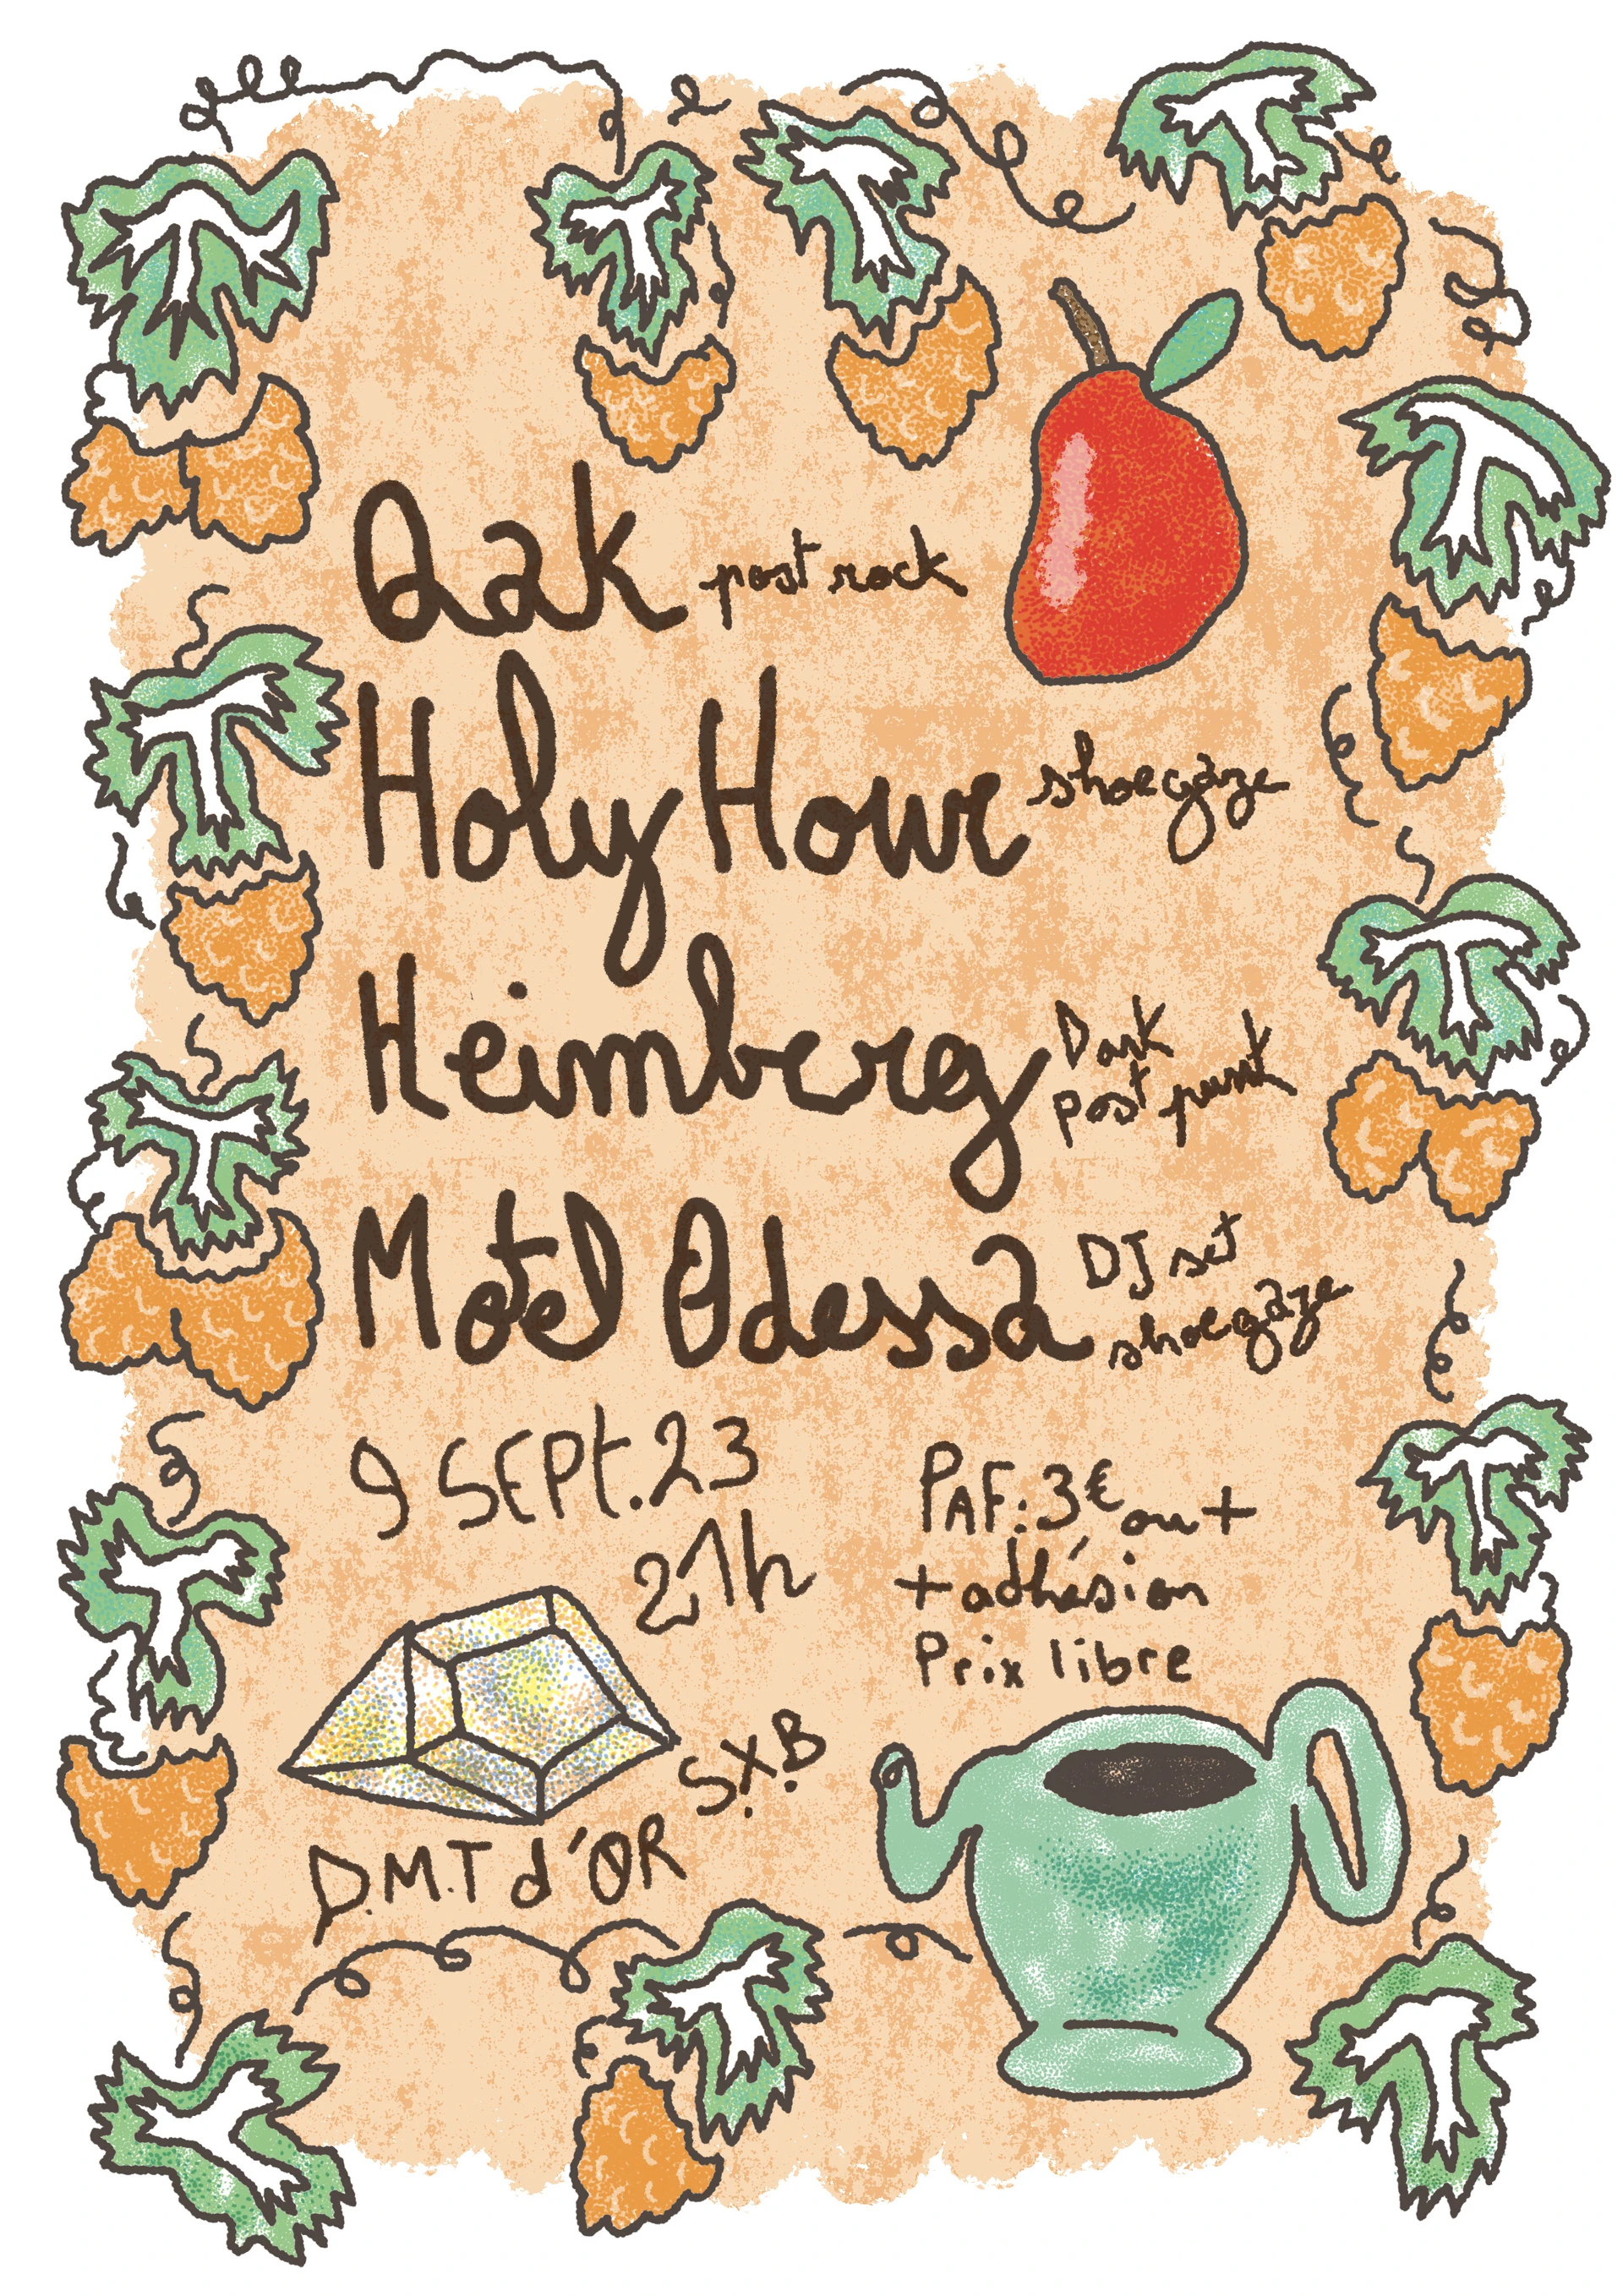 Qak post rock
Holy Hour shoegaze
Heimberg Dark post punk
Motel Odessa DJ set shoegaze
9 SEPt.23
21h
PAF: 3€ ou +
+ adhésion
Prix libre
S.X.B
D.M.T d'OR